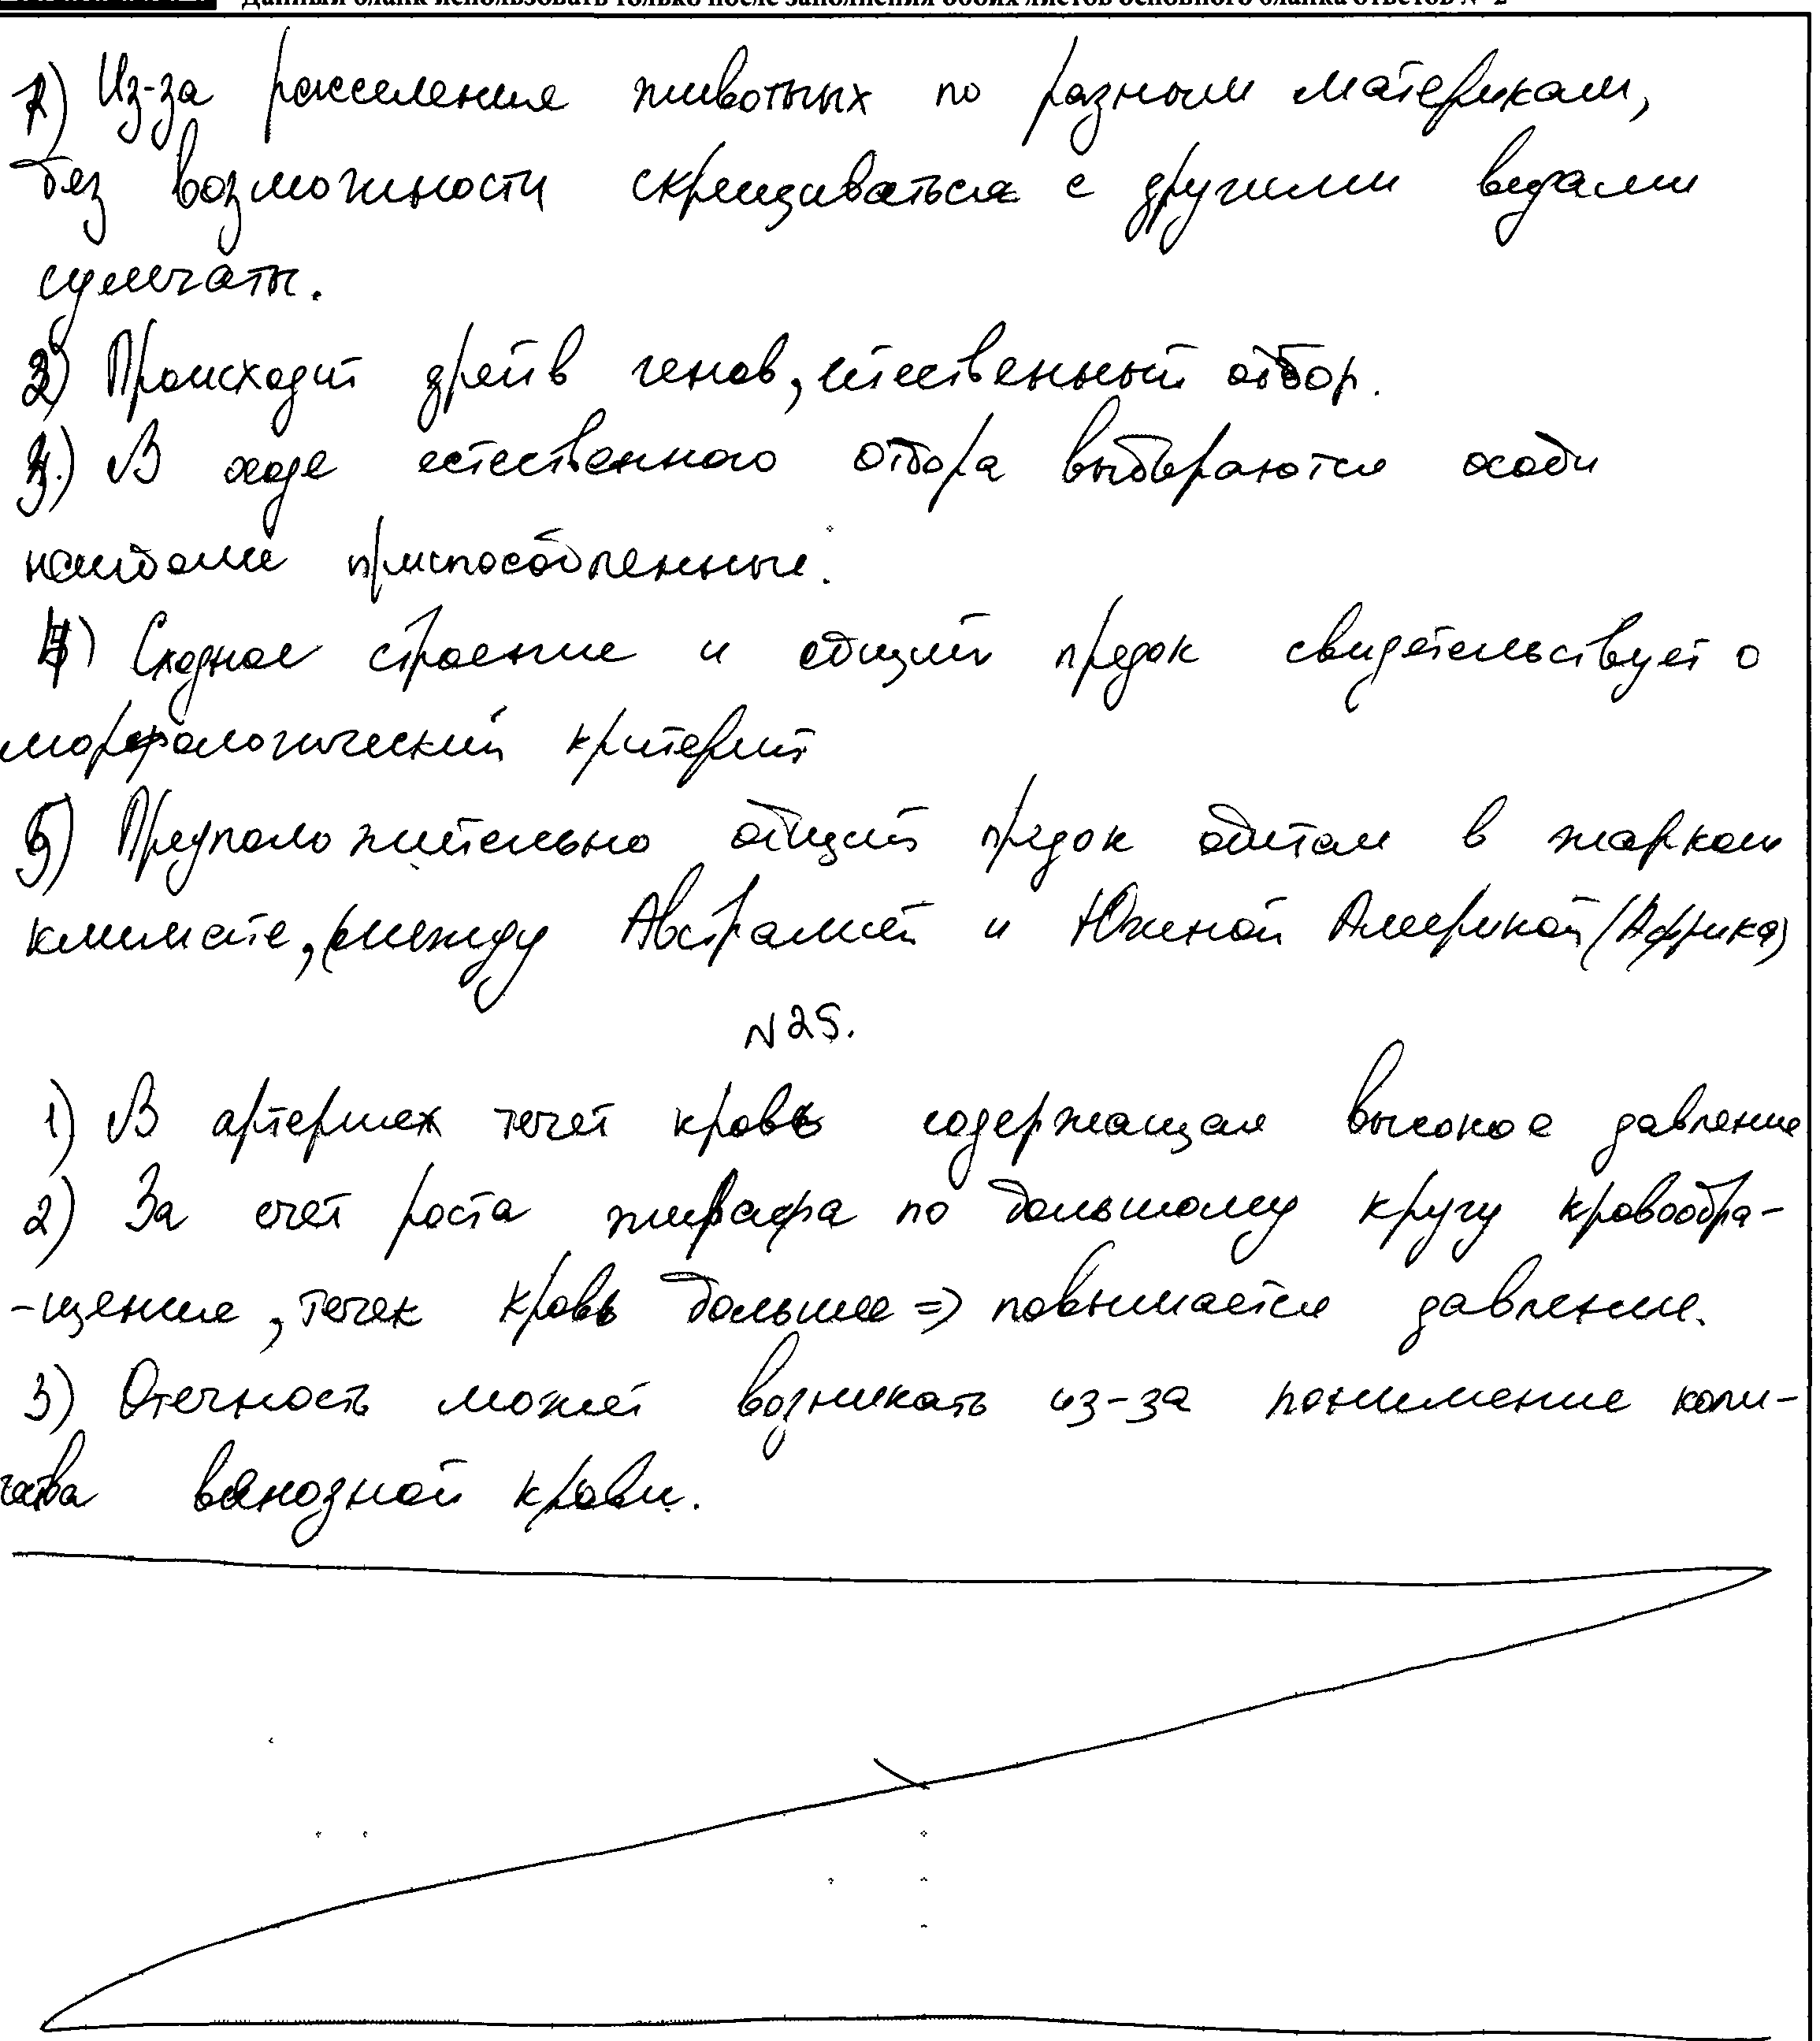 Данный бланк использовать только после заполнения обоих листов основного бланка ответов № 2
1) Из-за расселения животных по разным материкам,
без возможности скрещиваться с другими видами
сумчаты.
2) Происходит дрейф генов, естественный отбор.
3) В ходе естественного отбора выбираются особи
наиболее приспособленные.
4) Сходное строение и общий предок свидетельствует о
морфологический критерий
5) Предположительно общий предок обитал в жарком
климате, (между Австралией и Южной Америкой (Африка)
N 25.
1) В артериях течет кровь содержащая высокое давление
2) За счет роста жирафа по большому кругу кровообра-
-щения, течек кровь больше => повышается давление.
3) Отечность может возникать из-за понижение коли-
чества венозной крови.